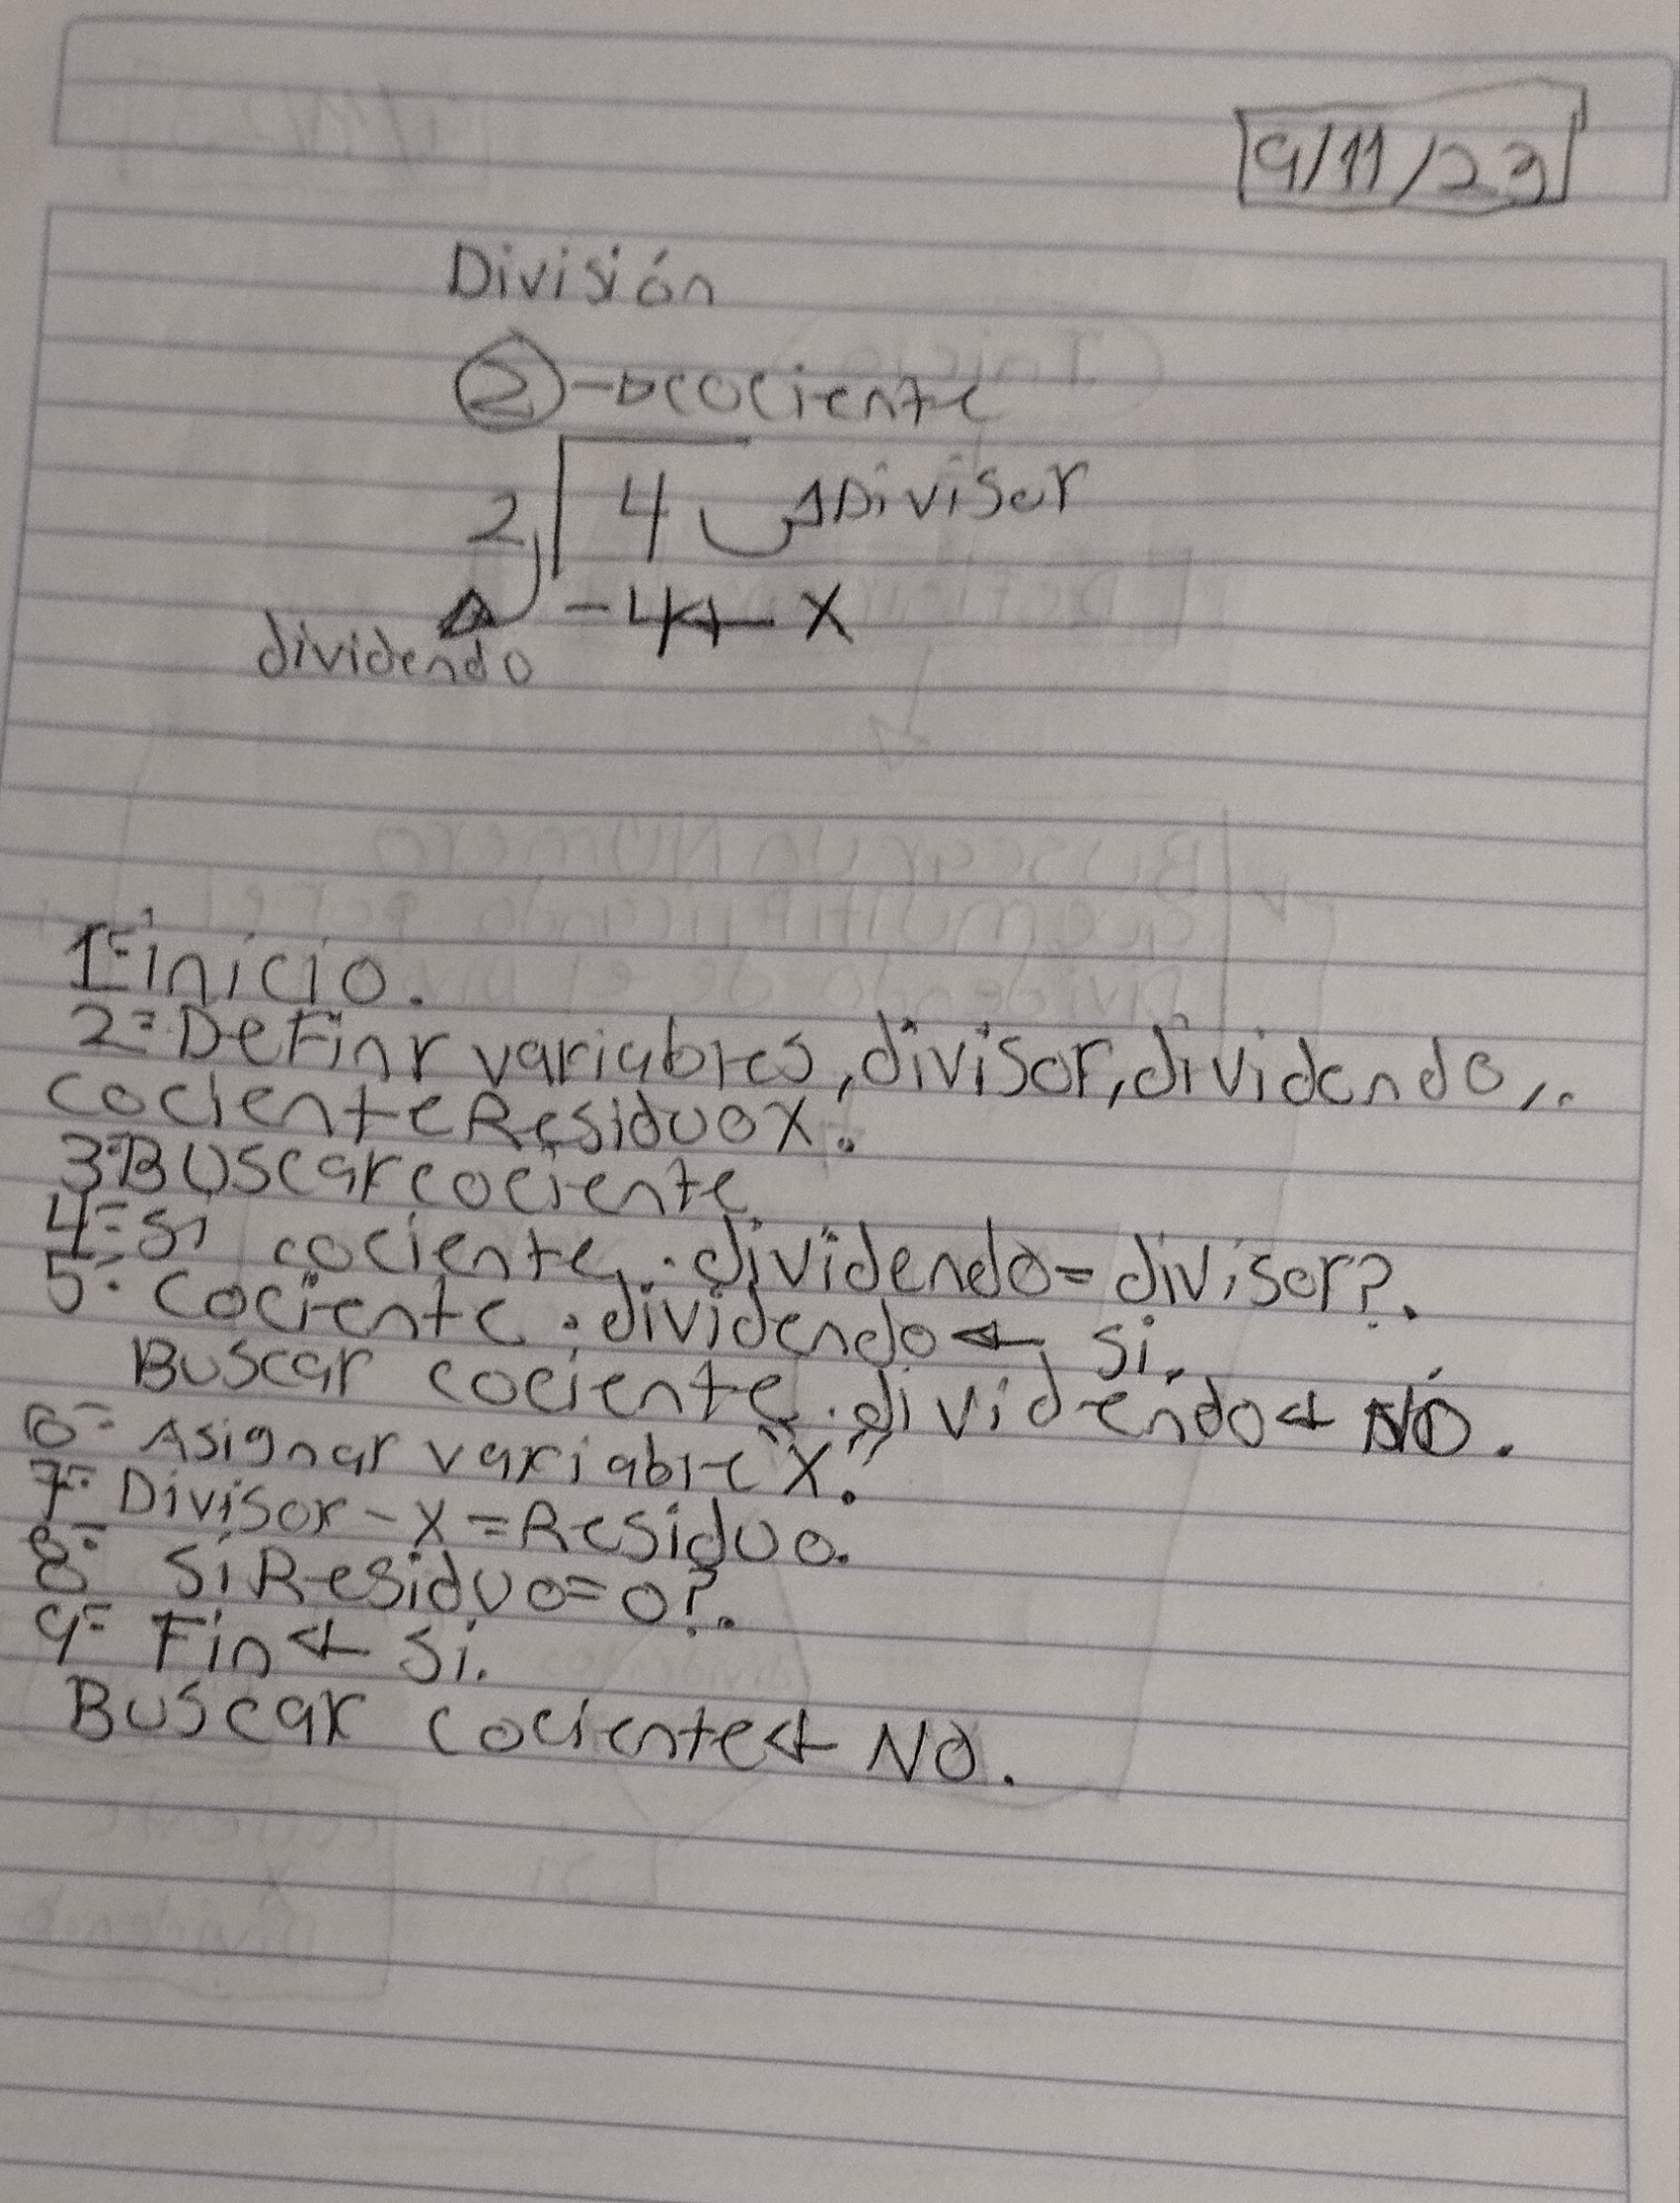 9/11/23
División
2 → cociente
2 4 Divisor
-4 ← X
dividendo
1=inicio.
2= Definr variables, divisor, dividendo,..
cociente Residuo X.
3=Buscar cociente.
4= si cociente · dividendo = divisor?.
5= Cociente · dividendo ← si.
Buscar cociente · dividendo ← NO.
6= Asignar variable "X".
7= Divisor - X = Residuo.
8= Si Residuo = 0?.
9= Fin ← si.
Buscar cociente ← NO.